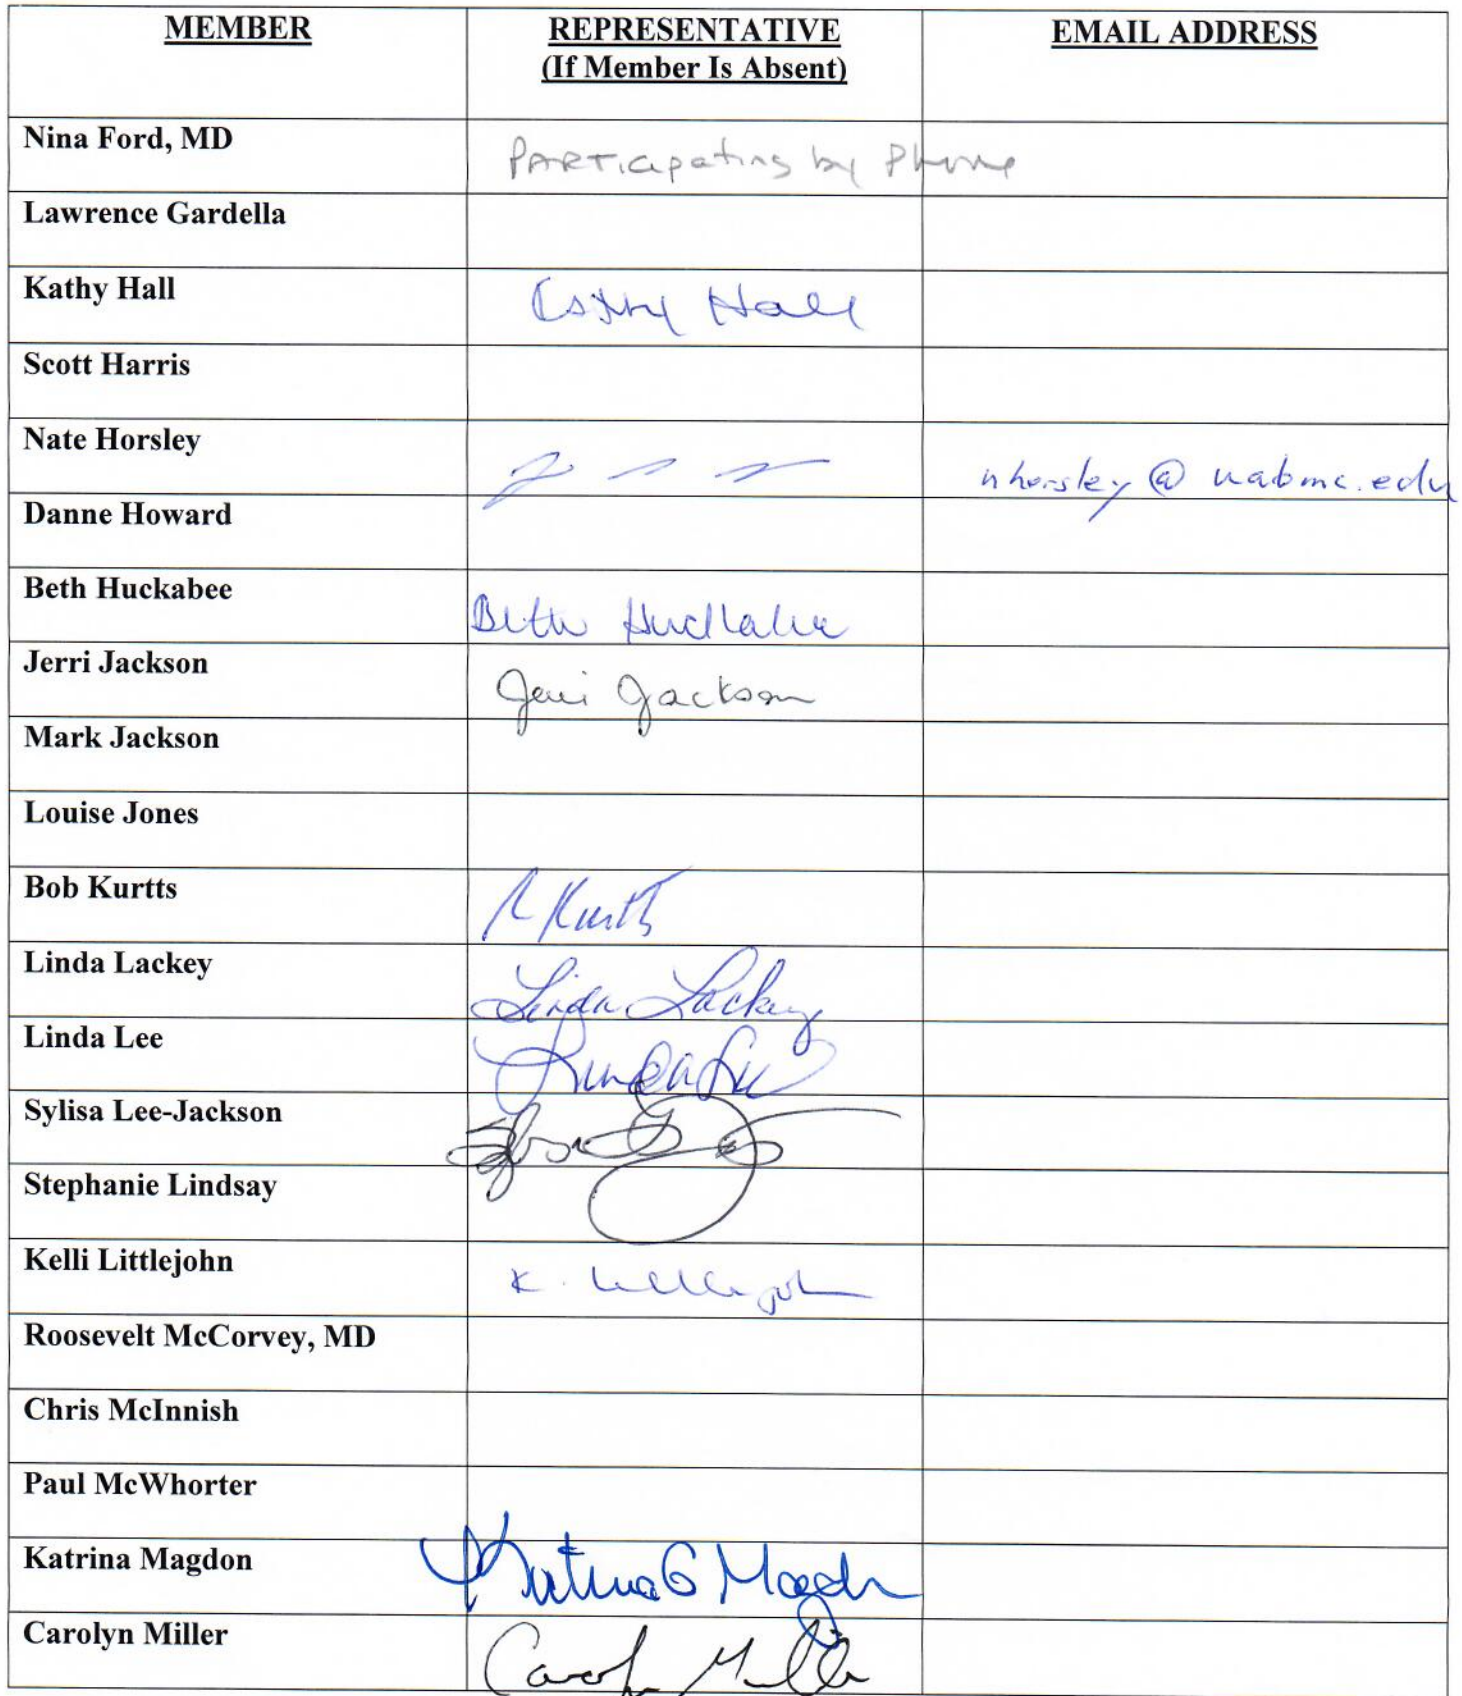 MEMBER REPRESENTATIVE EMAIL ADDRESS
(If Member Is Absent)
Nina Ford, MD PARTicipating by Phone
Lawrence Gardella
Kathy Hall Kathy Hall
Scott Harris
Nate Horsley nhorsley@uabmc.edu
Danne Howard
Beth Huckabee Beth Huckabee
Jerri Jackson Jerri Jackson
Mark Jackson
Louise Jones
Bob Kurtts R Kurtts
Linda Lackey Linda Lackey
Linda Lee Linda Lee
Sylisa Lee-Jackson
Stephanie Lindsay
Kelli Littlejohn K. Littlejohn
Roosevelt McCorvey, MD
Chris McInnish
Paul McWhorter
Katrina Magdon Katrina G Magdon
Carolyn Miller Carolyn Miller